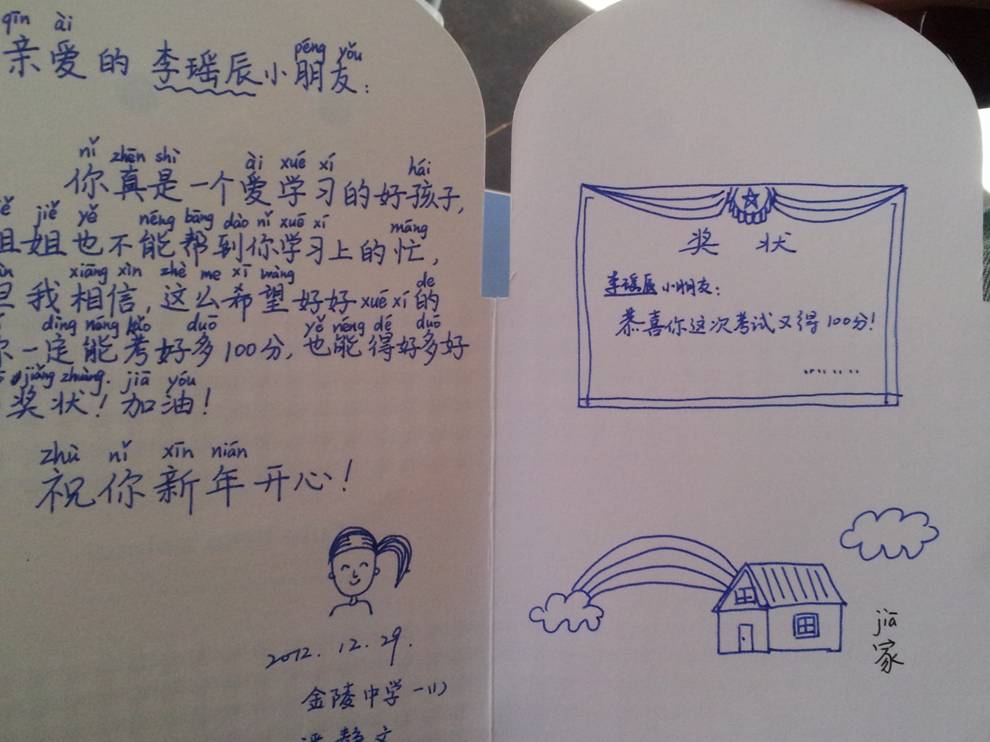 qīn ài péng yǒu
亲爱的 李瑶辰小朋友:
nǐ zhēn shì ài xué xí hái
你真是一个爱学习的好孩子,
jiě yě néng bāng dào nǐ xué xí máng
姐姐也不能帮到你学习上的忙,
xiāng xìn zhè me xī wàng de
但我相信,这么希望好好xué xí的
dìng néng kǎo duō yě néng dé duō
你一定能考好多100分,也能得好多好
jiǎng zhuàng. jiā yóu
奖状!加油!
zhù nǐ xīn nián
祝你新年开心!
2012.12.29.
金陵中学一(1)
静文
奖 状
李瑶辰小朋友:
恭喜你这次考试又得100分!
......
jiā
家